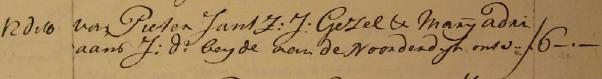 12 dito van Pieter Jans Z: J: Gezel & Marij Adri
aans J: dr beyde van de Noordendijk ontv: f 6-.-